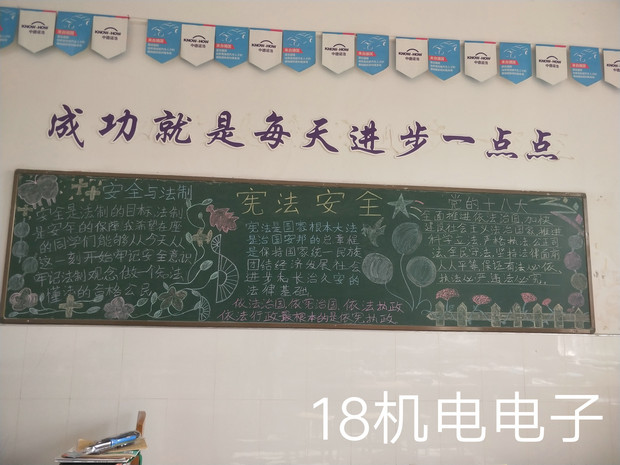 KNOW-HOW
中德诺浩
成功就是每天进步一点点
安全与法制
安全是法制的目标,法制
是安全的保障,我希望在座
的同学们能够从今天从
这一刻开始牢记安全意识
牢记法制观念,做一个知法
懂法的合格公民
宪法安全
宪法是国家根本大法
是治国安邦的总章程
是保持国家统一民族
团结经济发展社会
进步长治久安的
法律基础
依法治国,依宪治国,依法执政
依法行政最根本的是依宪执政
党的十八大
全面推进依法治国,加快
建设社会主义法治国家,推进
科学立法,严格执法,公正司
法,全民守法,坚持法律面前
人人平等,保证有法必依
执法必严,违法必究。
18机电电子